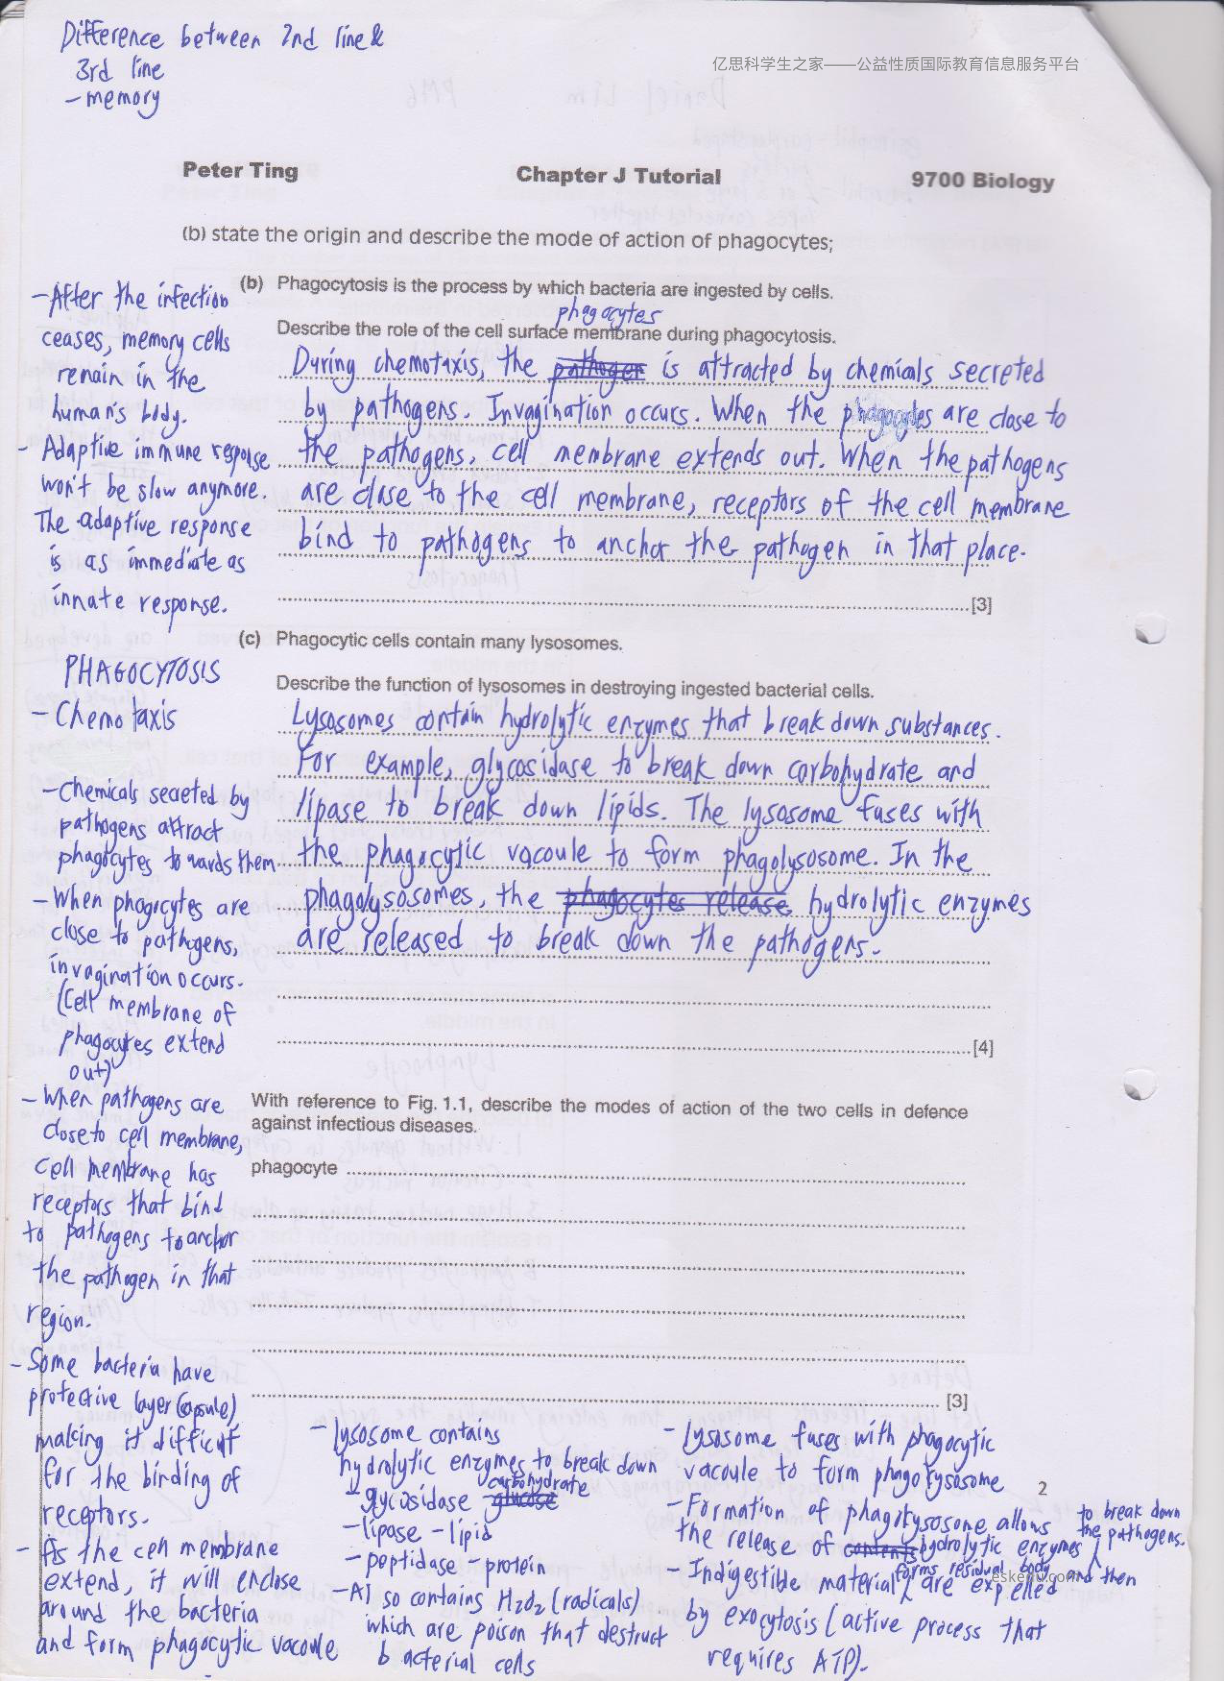 Difference between 2nd line &
3rd line
- memory
亿思科学生之家——公益性质国际教育信息服务平台
Peter Ting Chapter J Tutorial 9700 Biology
(b) state the origin and describe the mode of action of phagocytes;
(b) Phagocytosis is the process by which bacteria are ingested by cells.
Describe the role of the cell surface membrane during phagocytosis.
phagocytes
During chemotaxis, the pathogen is attracted by chemicals secreted
by pathogens. Invagination occurs. When the phagocytes are close to
the pathogens, cell membrane extends out. When the pathogens
are close to the cell membrane, receptors of the cell membrane
bind to pathogens to anchor the pathogen in that place.
[3]
- After the infection
ceases, memory cells
remain in the
human's body.
- Adaptive immune response
won't be slow anymore.
The adaptive response
is as immediate as
innate response.
(c) Phagocytic cells contain many lysosomes.
Describe the function of lysosomes in destroying ingested bacterial cells.
Lysosomes contain hydrolytic enzymes that break down substances.
For example, glycosidase to break down carbohydrate and
lipase to break down lipids. The lysosome fuses with
the phagocytic vacoule to form phagolysosome. In the
phagolysosomes, the phagocytes release hydrolytic enzymes
are released to break down the pathogens.
[4]
PHAGOCYTOSIS
- Chemotaxis
- Chemicals secreted by
pathogens attract
phagocytes towards them
- When phagocytes are
close to pathogens,
invagination occurs.
(Cell membrane of
phagocytes extend
out)
- When pathogens are
close to cell membrane,
cell membrane has
receptors that bind
to pathogens to anchor
the pathogen in that
region.
- Some bacteria have
protective layer (capsule)
making it difficult
for the binding of
receptors.
- As the cell membrane
extend, it will enclose
around the bacteria
and form phagocytic vacoule
With reference to Fig. 1.1, describe the modes of action of the two cells in defence
against infectious diseases.
phagocyte
[3]
- lysosome contains
hydrolytic enzymes to break down
carbohydrate
- glycosidase glucose
- lipase - lipid
- peptidase - protein
- Also contains H₂O₂ (radicals)
which are poison that destruct
bacterial cells
- Lysosome fuses with phagocytic
vacoule to form phagolysosome
2
- Formation of phagolysosome allows
the release of contents hydrolytic enzymes to break down
the pathogens.
- Indigestible material forms residual body and then
are expelled
by exocytosis (active process that
requires ATP).